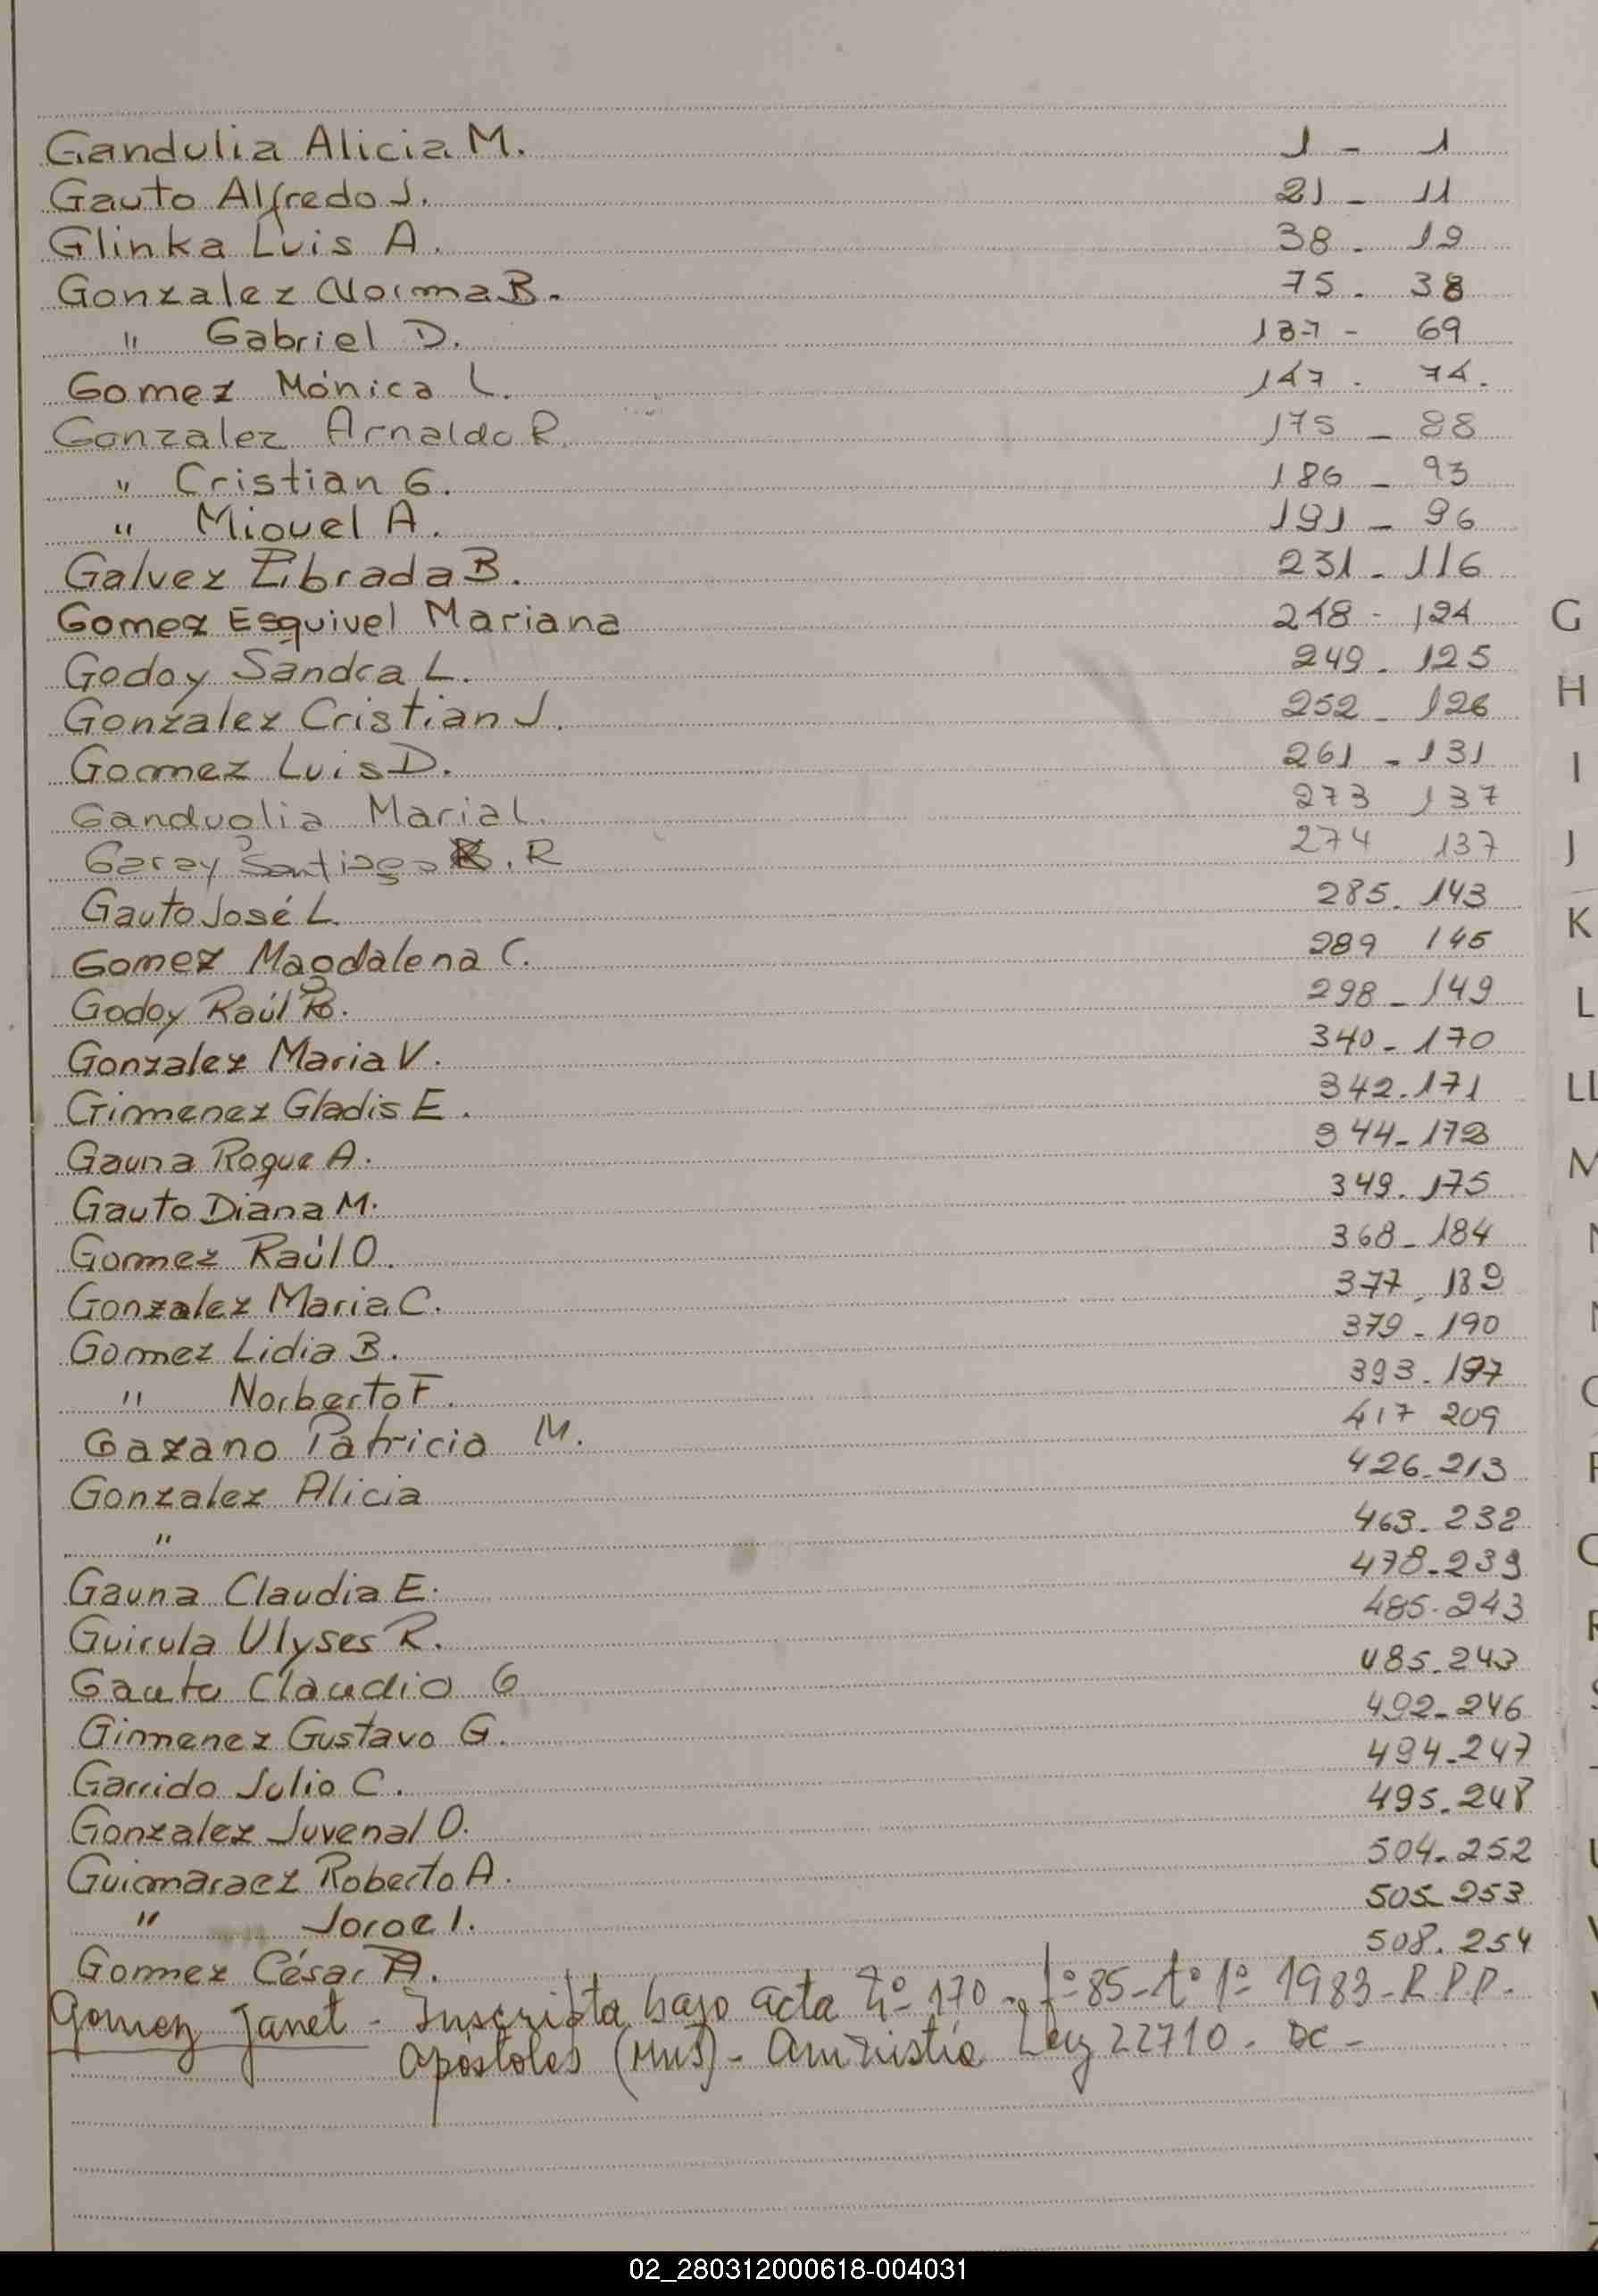 Gandulia Alicia M. 1 - 1
Gauto Alfredo J. 21 - 11
Glinka Luis A. 38 - 19
Gonzalez Norma B. 75 - 38
" Gabriel D. 137 - 69
Gomez Mónica L. 147 - 74.
Gonzalez Arnaldo R. 175 - 88
" Cristian G. 186 - 93
" Miguel A. 191 - 96
Galvez Librada B. 231 - 116
Gomez Esquivel Mariana 248 - 124
Godoy Sandra L. 249 - 125
Gonzalez Cristian J. 252 - 126
Gomez Luis D. 261 - 131
Ganduglia Maria L. 273 137
Garay Santiago R. 274 137
Gauto José L. 285. 143
Gomez Magdalena C. 289 145
Godoy Raúl R. 298 - 149
Gonzalez Maria V. 340 - 170
Gimenez Gladis E. 342. 171
Gauna Roque A. 344 - 172
Gauto Diana M. 349. 175
Gomez Raúl O. 368 - 184
Gonzalez Maria C. 377 - 189
Gomez Lidia B. 379 - 190
" Norberto F. 393. 197
Gazano Patricia M. 417 209
Gonzalez Alicia 426 - 213
" 463 - 232
Gauna Claudia E. 478 - 239
Guirula Ulyses R. 485 - 243
Gauto Claudio G 485 - 243
Gimenez Gustavo G. 492 - 246
Garrido Julio C. 494 - 247
Gonzalez Juvenal O. 495 - 248
Guimaraez Roberto A. 504 - 252
" Jorge I. 505 - 253
Gomez César A. 508. 254
Gomez Janet - Inscripta bajo acta Nº 170 - fº 85 - tº 1º 1983 - R.P.P.
Apóstoles (Mnes) - Amnistía Ley 22710 - DC -
G
H
I
J
K
L
LL
M
02_280312000618-004031